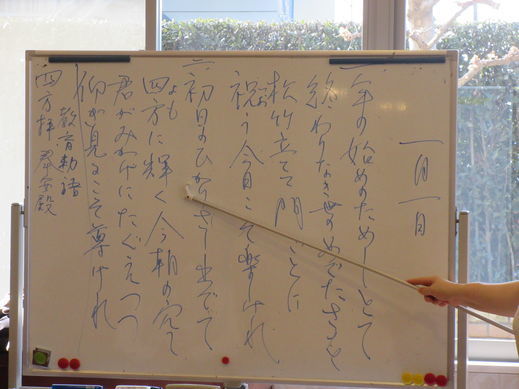 一月一日
一、年の始めのためしとて
終わりなき世のめでたさを
松竹立てて門ごとに
祝う今日こそ楽しけれ
二、初日のひかりさし出でて
四方に輝く今朝の空
よも
君がみかげにたぐえつつ
仰ぎ見るこそ尊けれ
教育勅語
四方拝 奉安殿